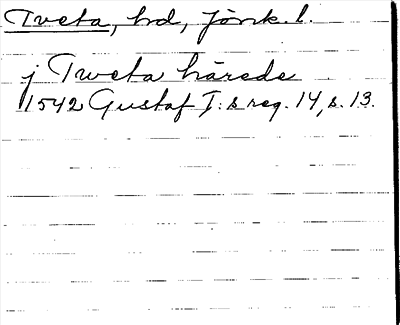 Tveta, hd, Jönk. l.
j Tweta härede
1542 Gustaf I:s reg. 14, s. 13.